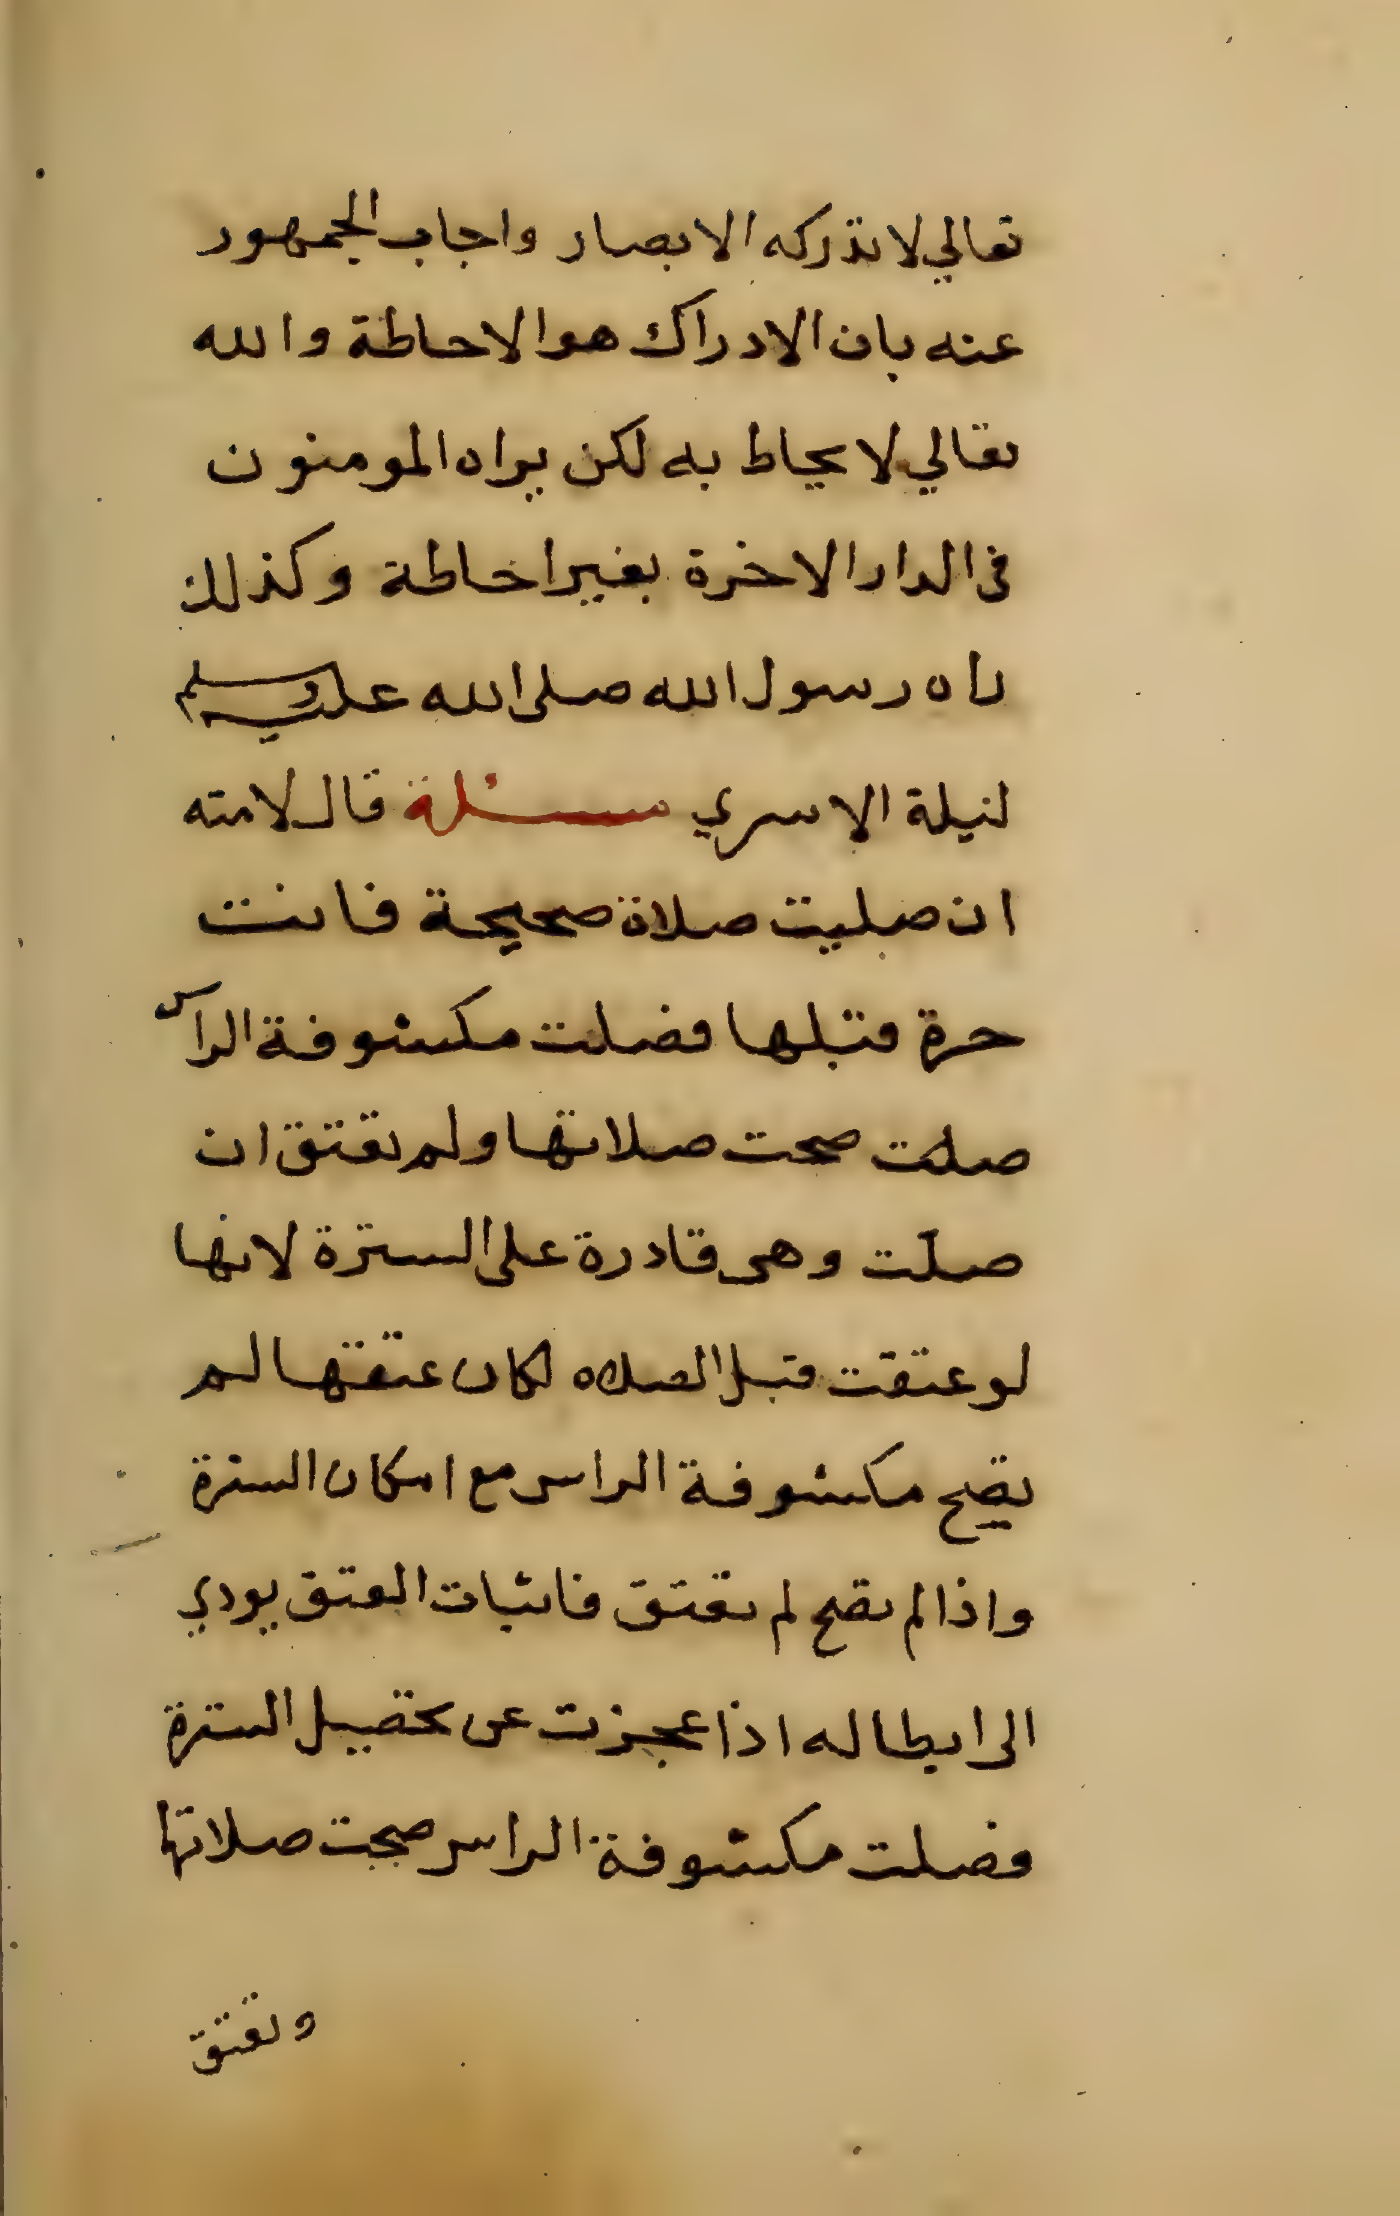 تعالي لا تدركه الابصار واجاب الجمهور
عنه بان الادراك هو الاحاطة والله
تعالي لا يحاط به لكن يراه المومنون
في الدار الاخرة بغير احاطة وكذلك
راه رسول الله صلى الله عليه وسلم
ليلة الاسري مسئلة قال لامته
ان صليت صلاة صحيحة فانت
حرة قبلها فصلت مكشوفة الراس
صلت صحت صلاتها ولم تعتق ان
صلت وهي قادرة على السترة لانها
لو عتقت قبل الصلاه لكان عتقها لم
تصح مكشوفة الراس مع امكان السترة
واذا لم تصح لم تعتق فاثبات العتق يودي
الى ابطاله اذا عجزت عن تحصيل السترة
فصلت مكشوفة الراس صحت صلاتها
وتعتق